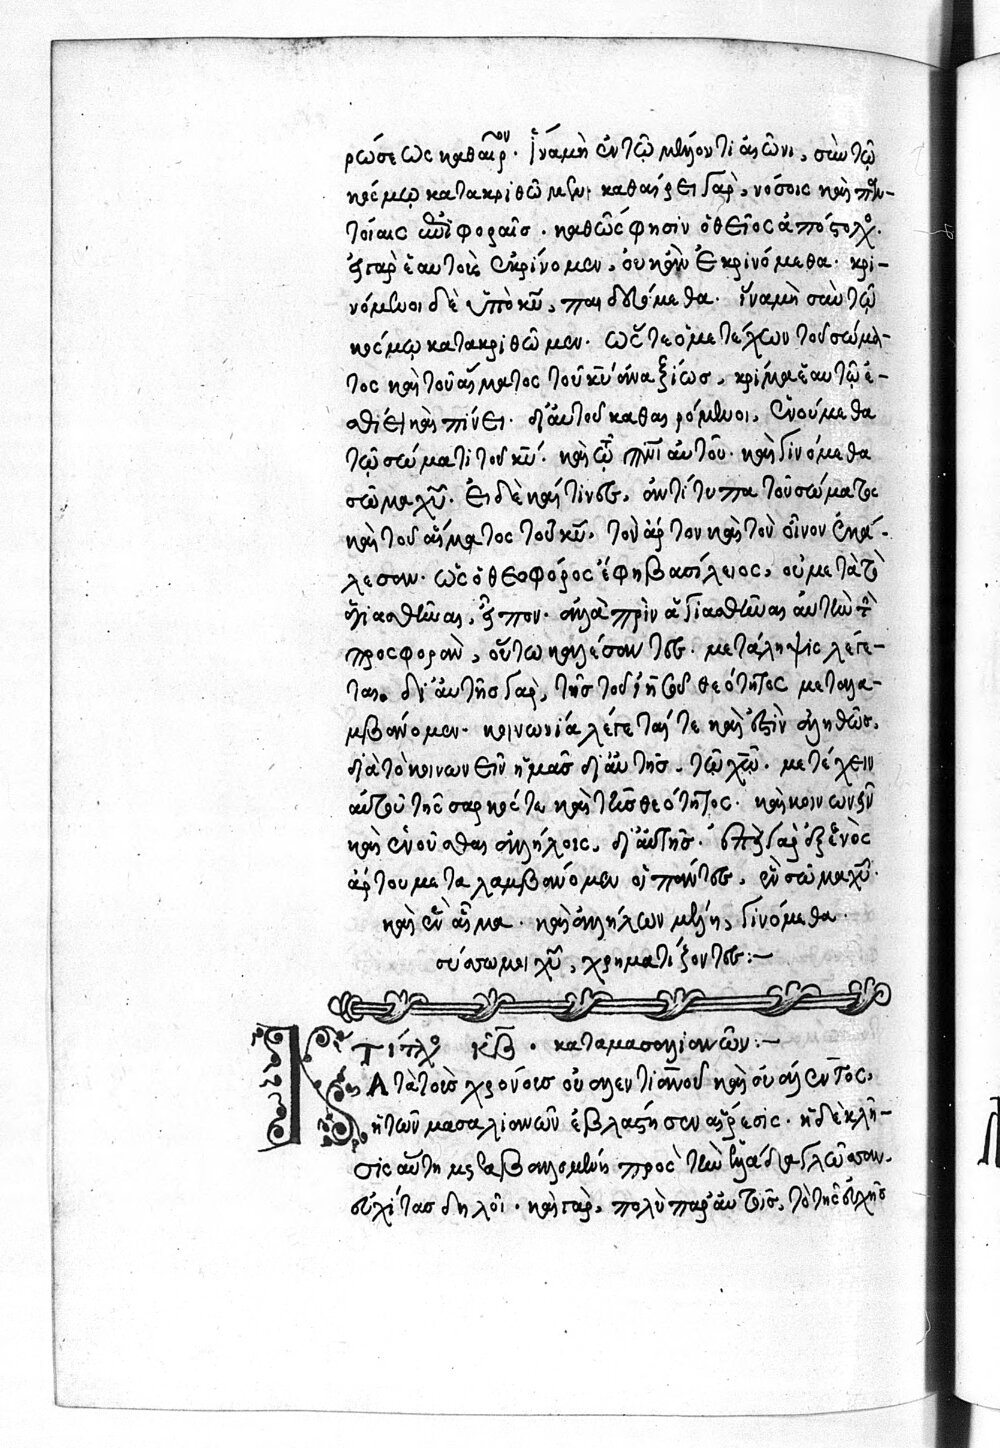 ρώσεως καθαίρον· ἵνα μὴ ἐν τῷ μέλλοντι αἰῶνι, σὺν τῷ
κόσμῳ κατακριθῶμεν· καθαίρει γὰρ, νόσοις καὶ παν-
τοίαις ἐπιφοραῖς· καθώς φησιν ὁ θεῖος ἀπόστολος·
εἰ γὰρ ἑαυτοὺς ἐκρίνομεν, οὐκ ἂν ἐκρινόμεθα· κρι-
νόμενοι δὲ ὑπὸ κυ, παιδευόμεθα· ἵνα μὴ σὺν τῷ
κόσμῳ κατακριθῶμεν· ὥστε ὁ μετέχων τοῦ σώμα-
τος καὶ τοῦ αἵματος τοῦ κυ ἀναξίως, κρίμα ἑαυτῷ ἐ-
σθίει καὶ πίνει· δι' αὐτοῦ καθαιρόμενοι, ἑνούμεθα
τῷ σώματι τοῦ κυ· καὶ τῷ πνι αὐτοῦ· καὶ γινόμεθα
σῶμα χυ· Εἰ δὲ καί τινες, ἀντίτυπα τοῦ σώματος
καὶ τοῦ αἵματος τοῦ κυ, τὸν ἄρτον καὶ τὸν οἶνον ἐκά-
λεσαν· ὡς ὁ θεοφόρος ἔφη βασίλειος, οὐ μετὰ τὸ
ἁγιασθῆναι, εἶπον· ἀλλὰ πρὶν ἁγιασθῆναι αὐτὴν τὴν
προσφορὰν, οὕτω καλέσαντες· μετάληψις λέγε-
ται· δι' αὐτῆς γὰρ, τῆς τοῦ ιυ θεότητος μεταλα-
μβάνομεν· κοινωνία λέγεταί τε καὶ ἔστιν ἀληθῶς,
διὰ τὸ κοινωνεῖν ἡμᾶς δι' αὐτῆς, τῷ χω· μετέχειν
αὐτοῦ τῆς σαρκός τε καὶ τῆς θεότητος· καὶ κοινωνεῖν
καὶ ἑνοῦσθαι ἀλλήλοις, δι' αὐτῆς· ἐπεὶ γὰρ ἐξ ἑνὸς
ἄρτου μεταλαμβάνομεν οἱ πάντες, ἓν σῶμα χυ·
καὶ ἓν αἷμα· καὶ ἀλλήλων μέλη, γινόμεθα·
σύσσωμοι χυ, χρηματίζοντες:—
Τίτλος κβ· κατὰ μασσαλιανῶν:—
Κατὰ τοὺς χρόνους οὐαλεντιανοῦ καὶ οὐάλεντος,
ἡ τῶν μασαλιανῶν ἐβλάστησεν αἵρεσις· ἡ δὲ κλῆ-
σις αὕτη μεταβαλομένη πρὸς τὴν ἑλλάδα γλῶσσαν,
εὐχίτας δηλοῖ· καὶ γὰρ, πολὺ παρ' αὐτοῖς, τὸ τῆς εὐχῆς